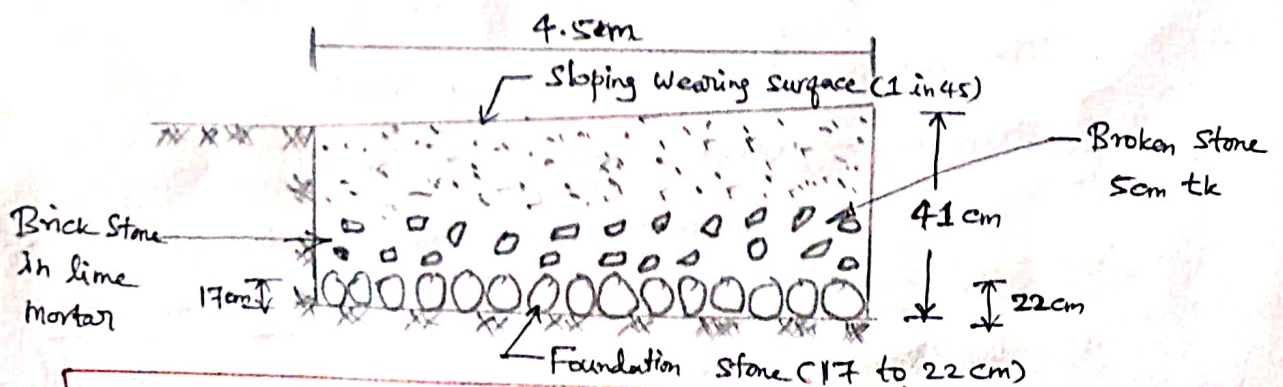 4.5cm
Sloping wearing surface (1 in 45)
Broken Stone
5cm tk
41 cm
Brick Stone
in lime
mortar
17cm
22cm
Foundation Stone (17 to 22 cm)